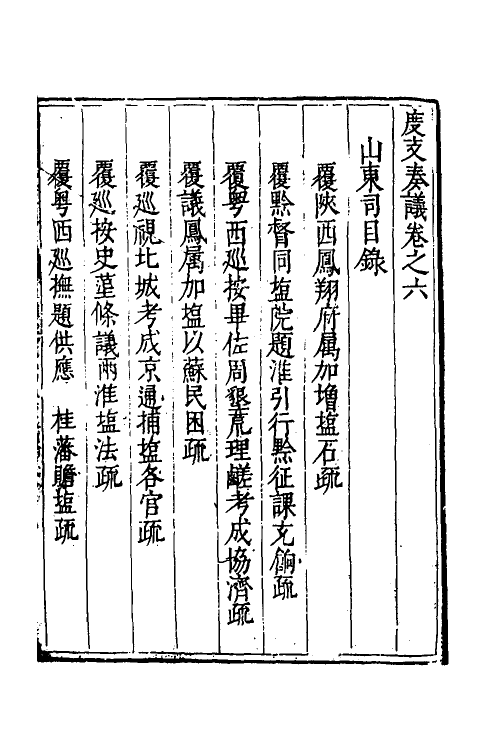 度支奏議卷之六
山東司目錄
覆陜西鳳翔府属加增塩石疏
覆黔督同塩院題淮引行黔征課充餉疏
覆粤西廵按畢佐周墾荒理鹺考成協濟疏
覆議鳳属加塩以蘇民困疏
覆廵視北城考成京通捕塩各官疏
覆廵按史𡎊條議兩淮塩法疏
覆粤西廵撫題供應　桂藩贍塩疏